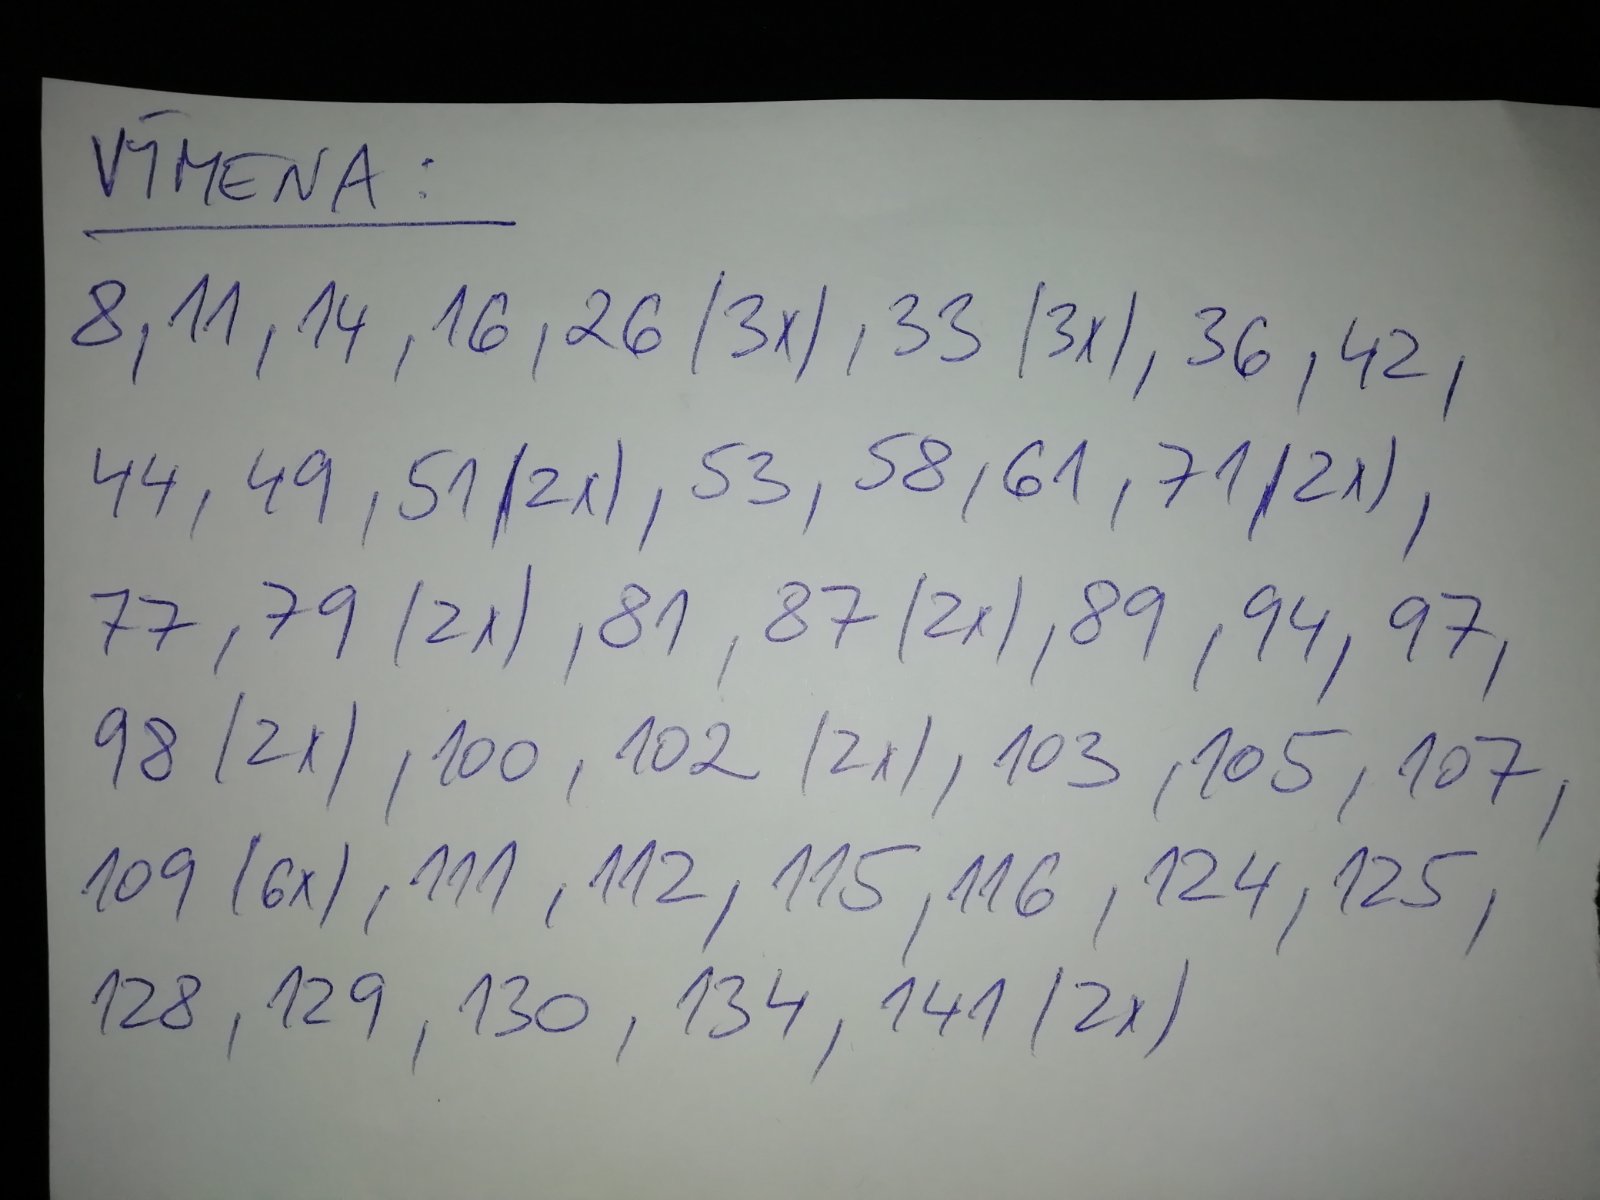 VÝMENA:
8, 11, 14, 16, 26 (3x), 33 (3x), 36, 42,
44, 49, 51 (2x), 53, 58, 61, 71 (2x),
77, 79 (2x), 81, 87 (2x), 89, 94, 97,
98 (2x), 100, 102 (2x), 103, 105, 107,
109 (6x), 111, 112, 115, 116, 124, 125,
128, 129, 130, 134, 141 (2x)